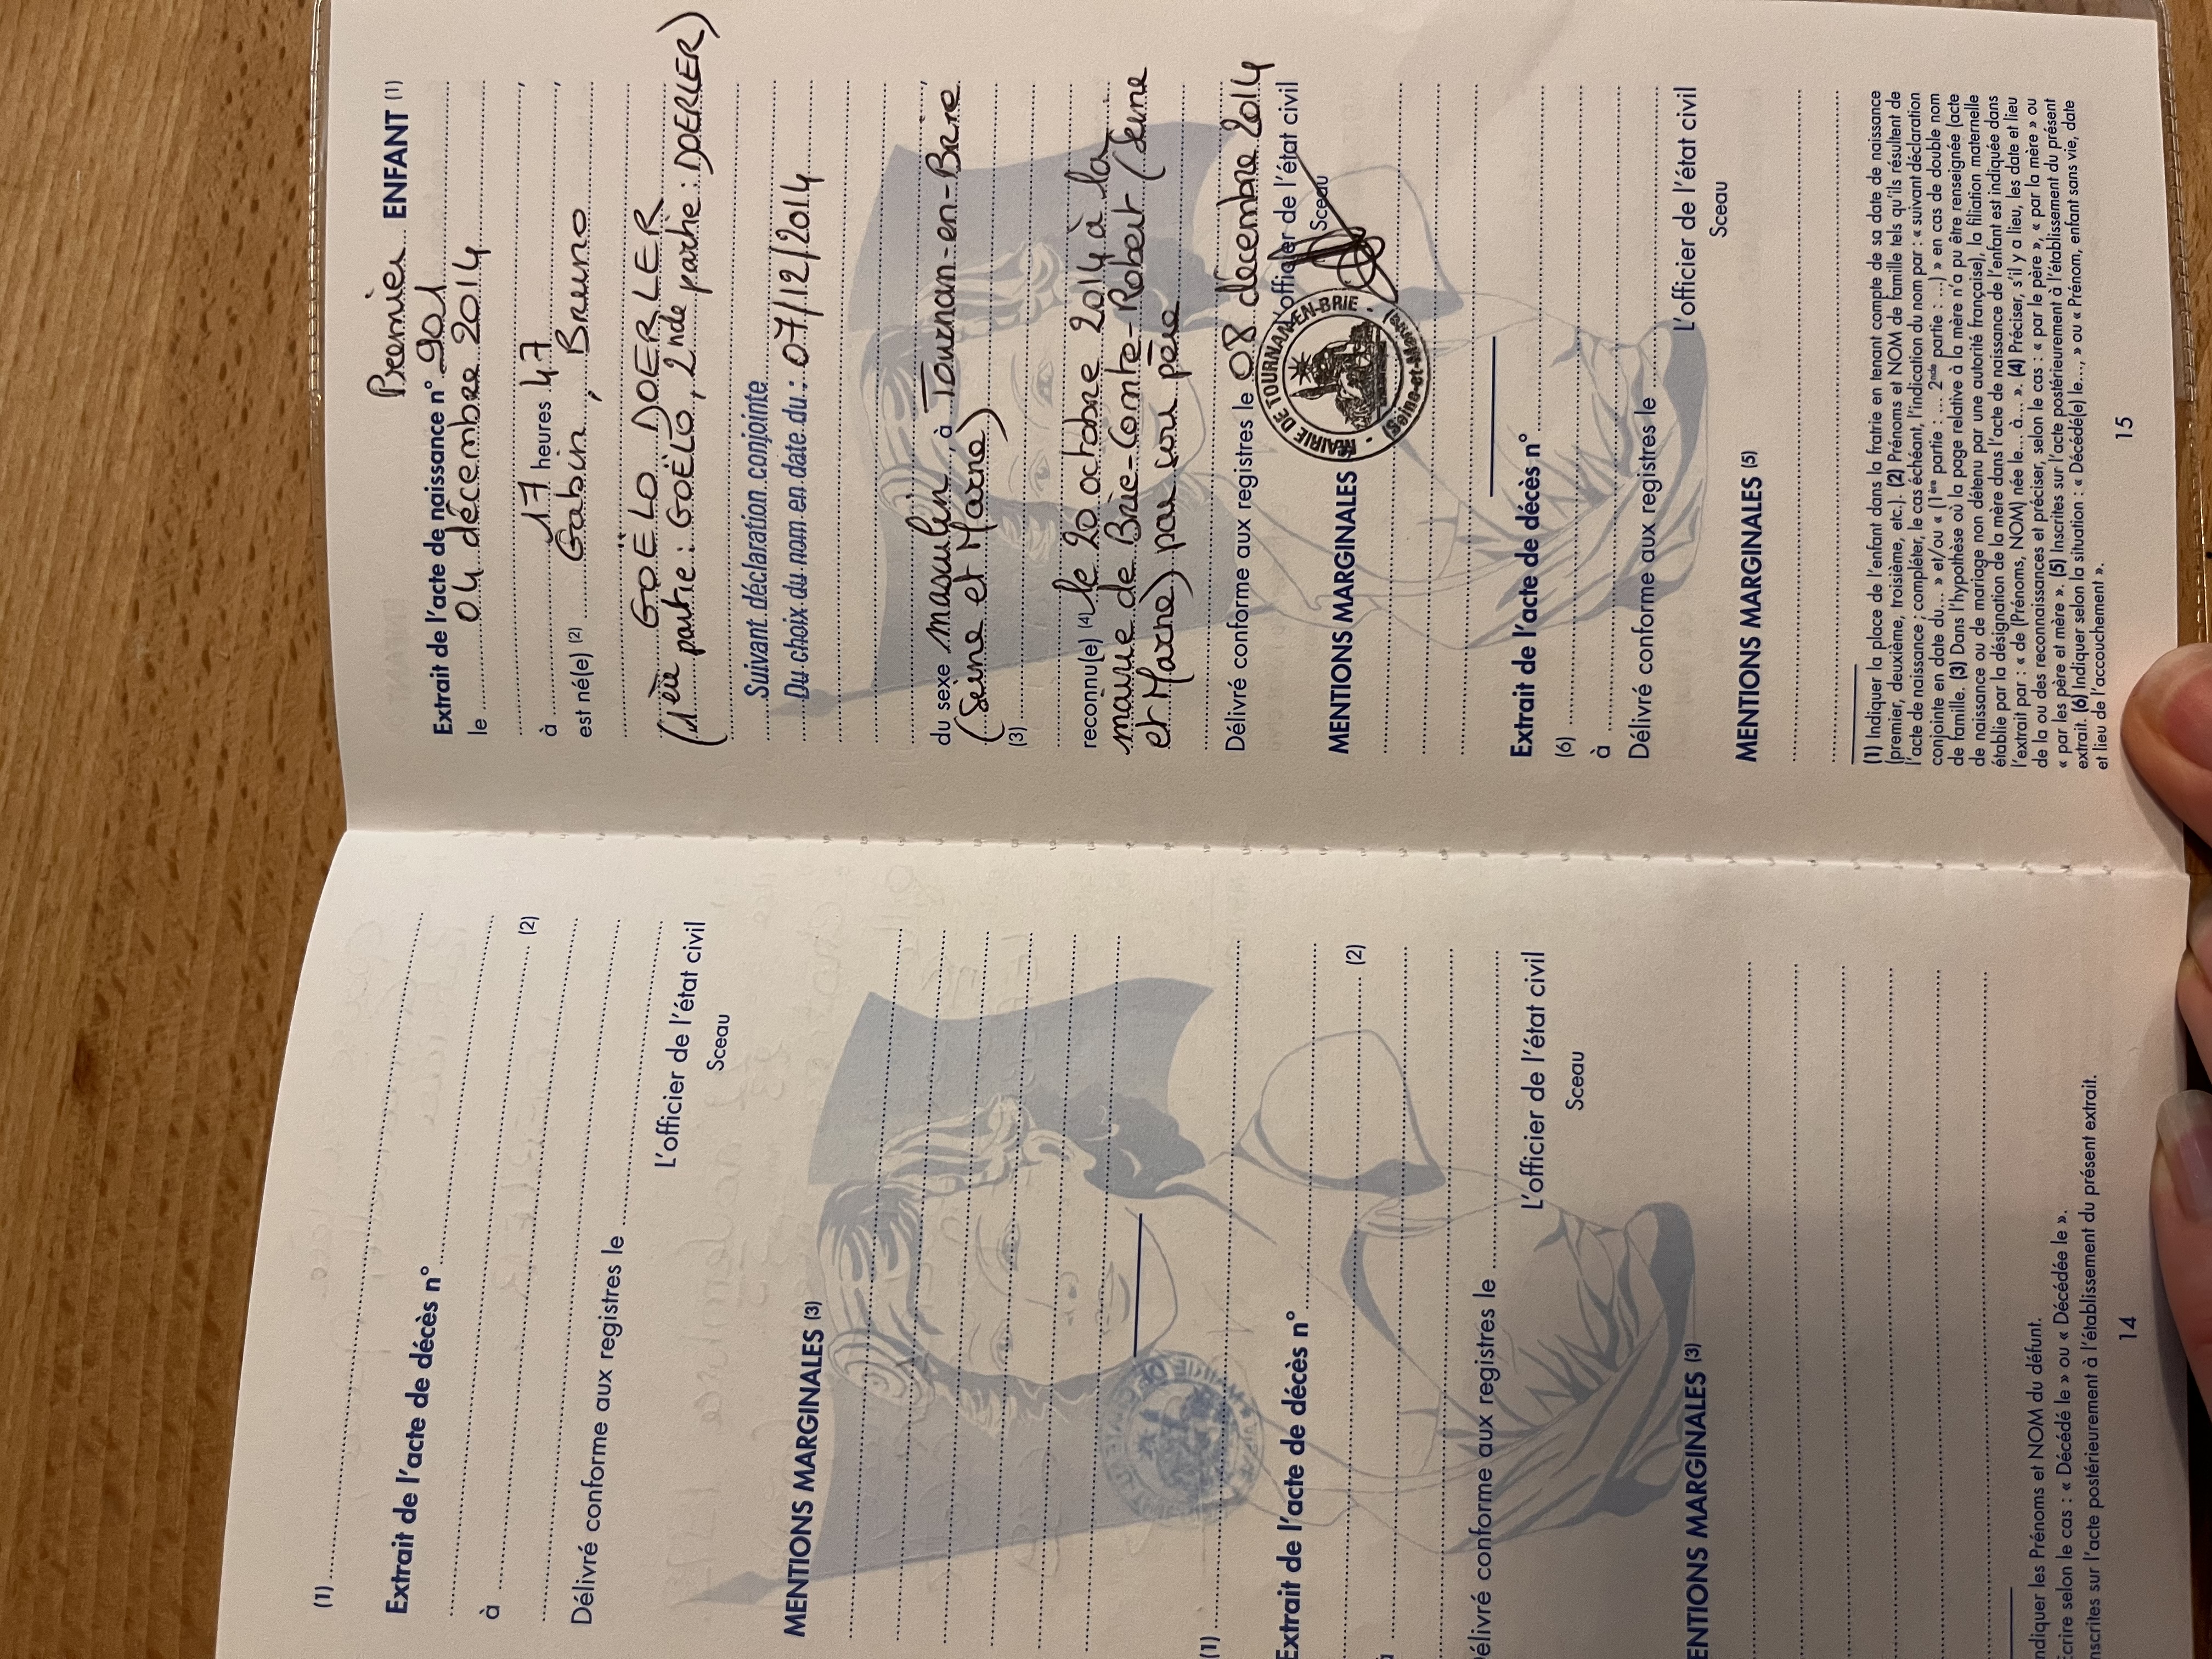 (1)
Extrait de l'acte de décès n°
à (2)
Délivré conforme aux registres le
L'officier de l'état civil
Sceau
MENTIONS MARGINALES (3)
(1)
Extrait de l'acte de décès n°
(2)
élivré conforme aux registres le
L'officier de l'état civil
Sceau
ENTIONS MARGINALES (3)
ndiquer les Prénoms et NOM du défunt.
crire selon le cas : « Décédé le » ou « Décédée le ».
nscrites sur l'acte postérieurement à l'établissement du présent extrait.
14
Premier ENFANT (1)
Extrait de l'acte de naissance n° 901
le 04 décembre 2014
à 17 heures 47,
est né(e) (2) Gabin, Bruno
GOËLO DOERLER
(1ère partie : GOËLO, 2nde partie : DOERLER)
Suivant déclaration conjointe
Du choix du nom en date du : 07/12/2014
du sexe masculin, à Tournan-en-Brie,
(Seine et Marne)
(3)
reconnu(e) (4) le 20 octobre 2014 à la
mairie de Brie-Comte-Robert (Seine
et Marne) par son père
Délivré conforme aux registres le 08 décembre 2014
L'officier de l'état civil
Sceau
MAIRIE DE TOURNAN-EN-BRIE
(Seine-et-Marne)
MENTIONS MARGINALES (5)
Extrait de l'acte de décès n°
(6)
à
Délivré conforme aux registres le
L'officier de l'état civil
Sceau
MENTIONS MARGINALES (5)
(1) Indiquer la place de l'enfant dans la fratrie en tenant compte de sa date de naissance
(premier, deuxième, troisième, etc.). (2) Prénoms et NOM de famille tels qu'ils résultent de
l'acte de naissance ; compléter, le cas échéant, l'indication du nom par : « suivant déclaration
conjointe en date du... » et/ou « (1ère partie : ... 2nde partie : ...) » en cas de double nom
de famille. (3) Dans l'hypothèse où la page relative à la mère n'a pu être renseignée (acte
de naissance ou de mariage non détenu par une autorité française), la filiation maternelle
établie par la désignation de la mère dans l'acte de naissance de l'enfant est indiquée dans
l'extrait par : « de (Prénoms, NOM) née le... à... ». (4) Préciser, s'il y a lieu, les date et lieu
de la ou des reconnaissances et préciser, selon le cas : « par le père », « par la mère » ou
« par les père et mère ». (5) Inscrites sur l'acte postérieurement à l'établissement du présent
extrait. (6) Indiquer selon la situation : « Décédé(e) le..., » ou « Prénom, enfant sans vie, date
et lieu de l'accouchement ».
15